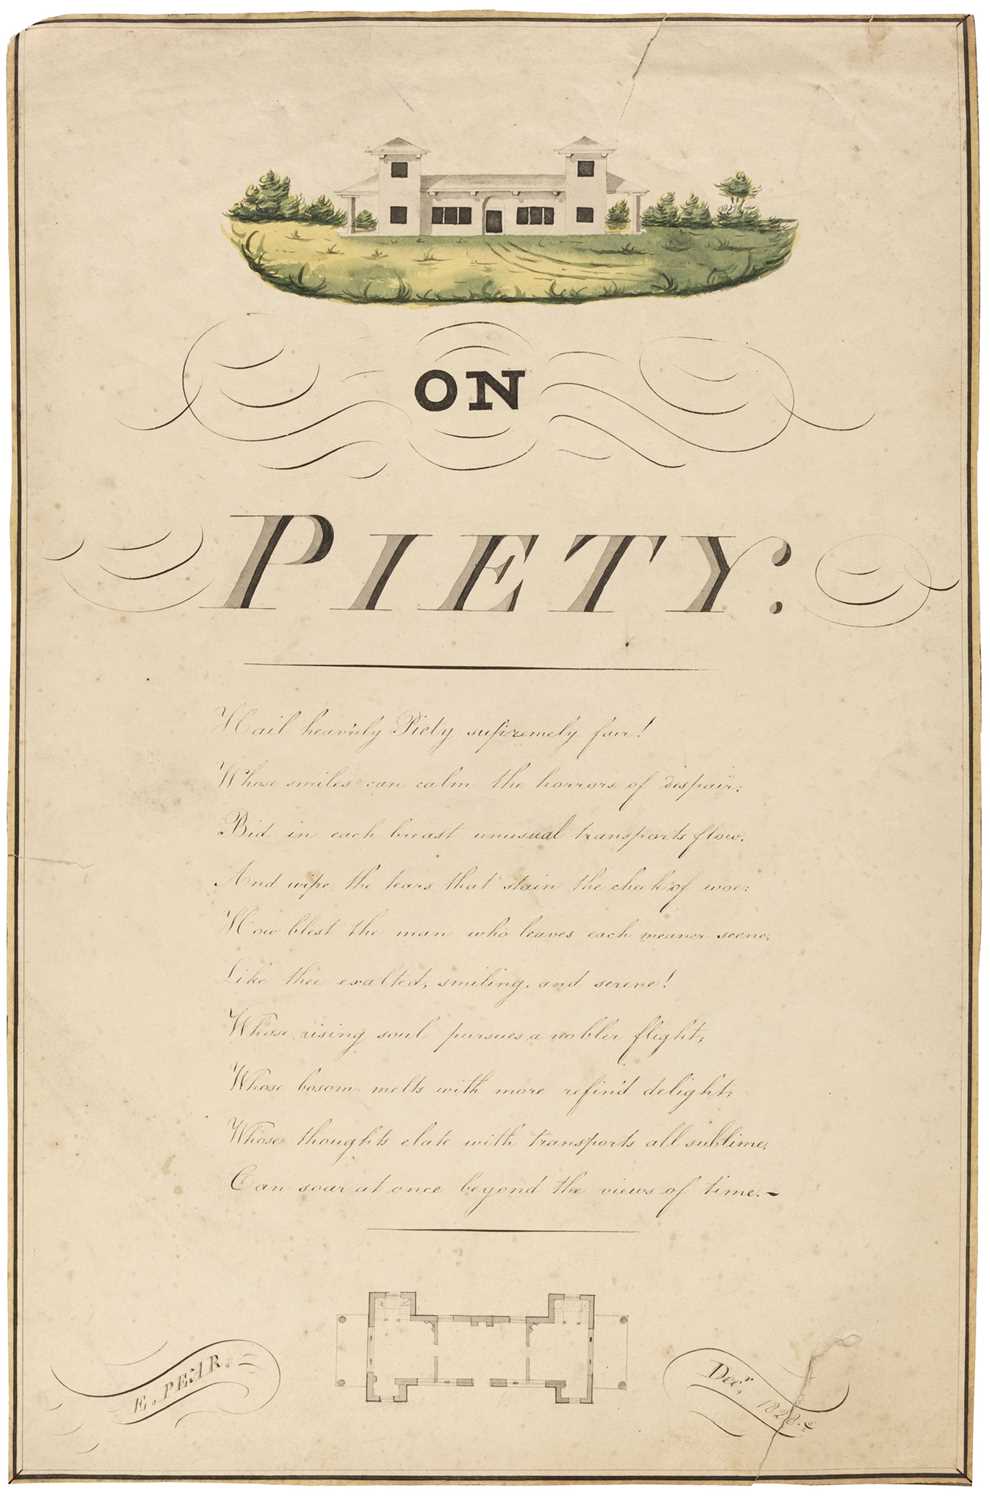 ON
PIETY.
Hail heav'nly Piety supremely fair!
Whose smiles can calm the horrors of despair;
Bid in each breast unusual transports flow.
And wipe the tears that stain the cheek of woe:
How blest the man who leaves each meaner scene,
Like thee exalted, smiling, and serene!
Whose rising soul pursues a nobler flight,
Whose bosom melts with more refin'd delight;
Whose thoughts elate with transports all sublime,
Can soar at once beyond the views of time.—
E. PEAR.
Decr. 1828.